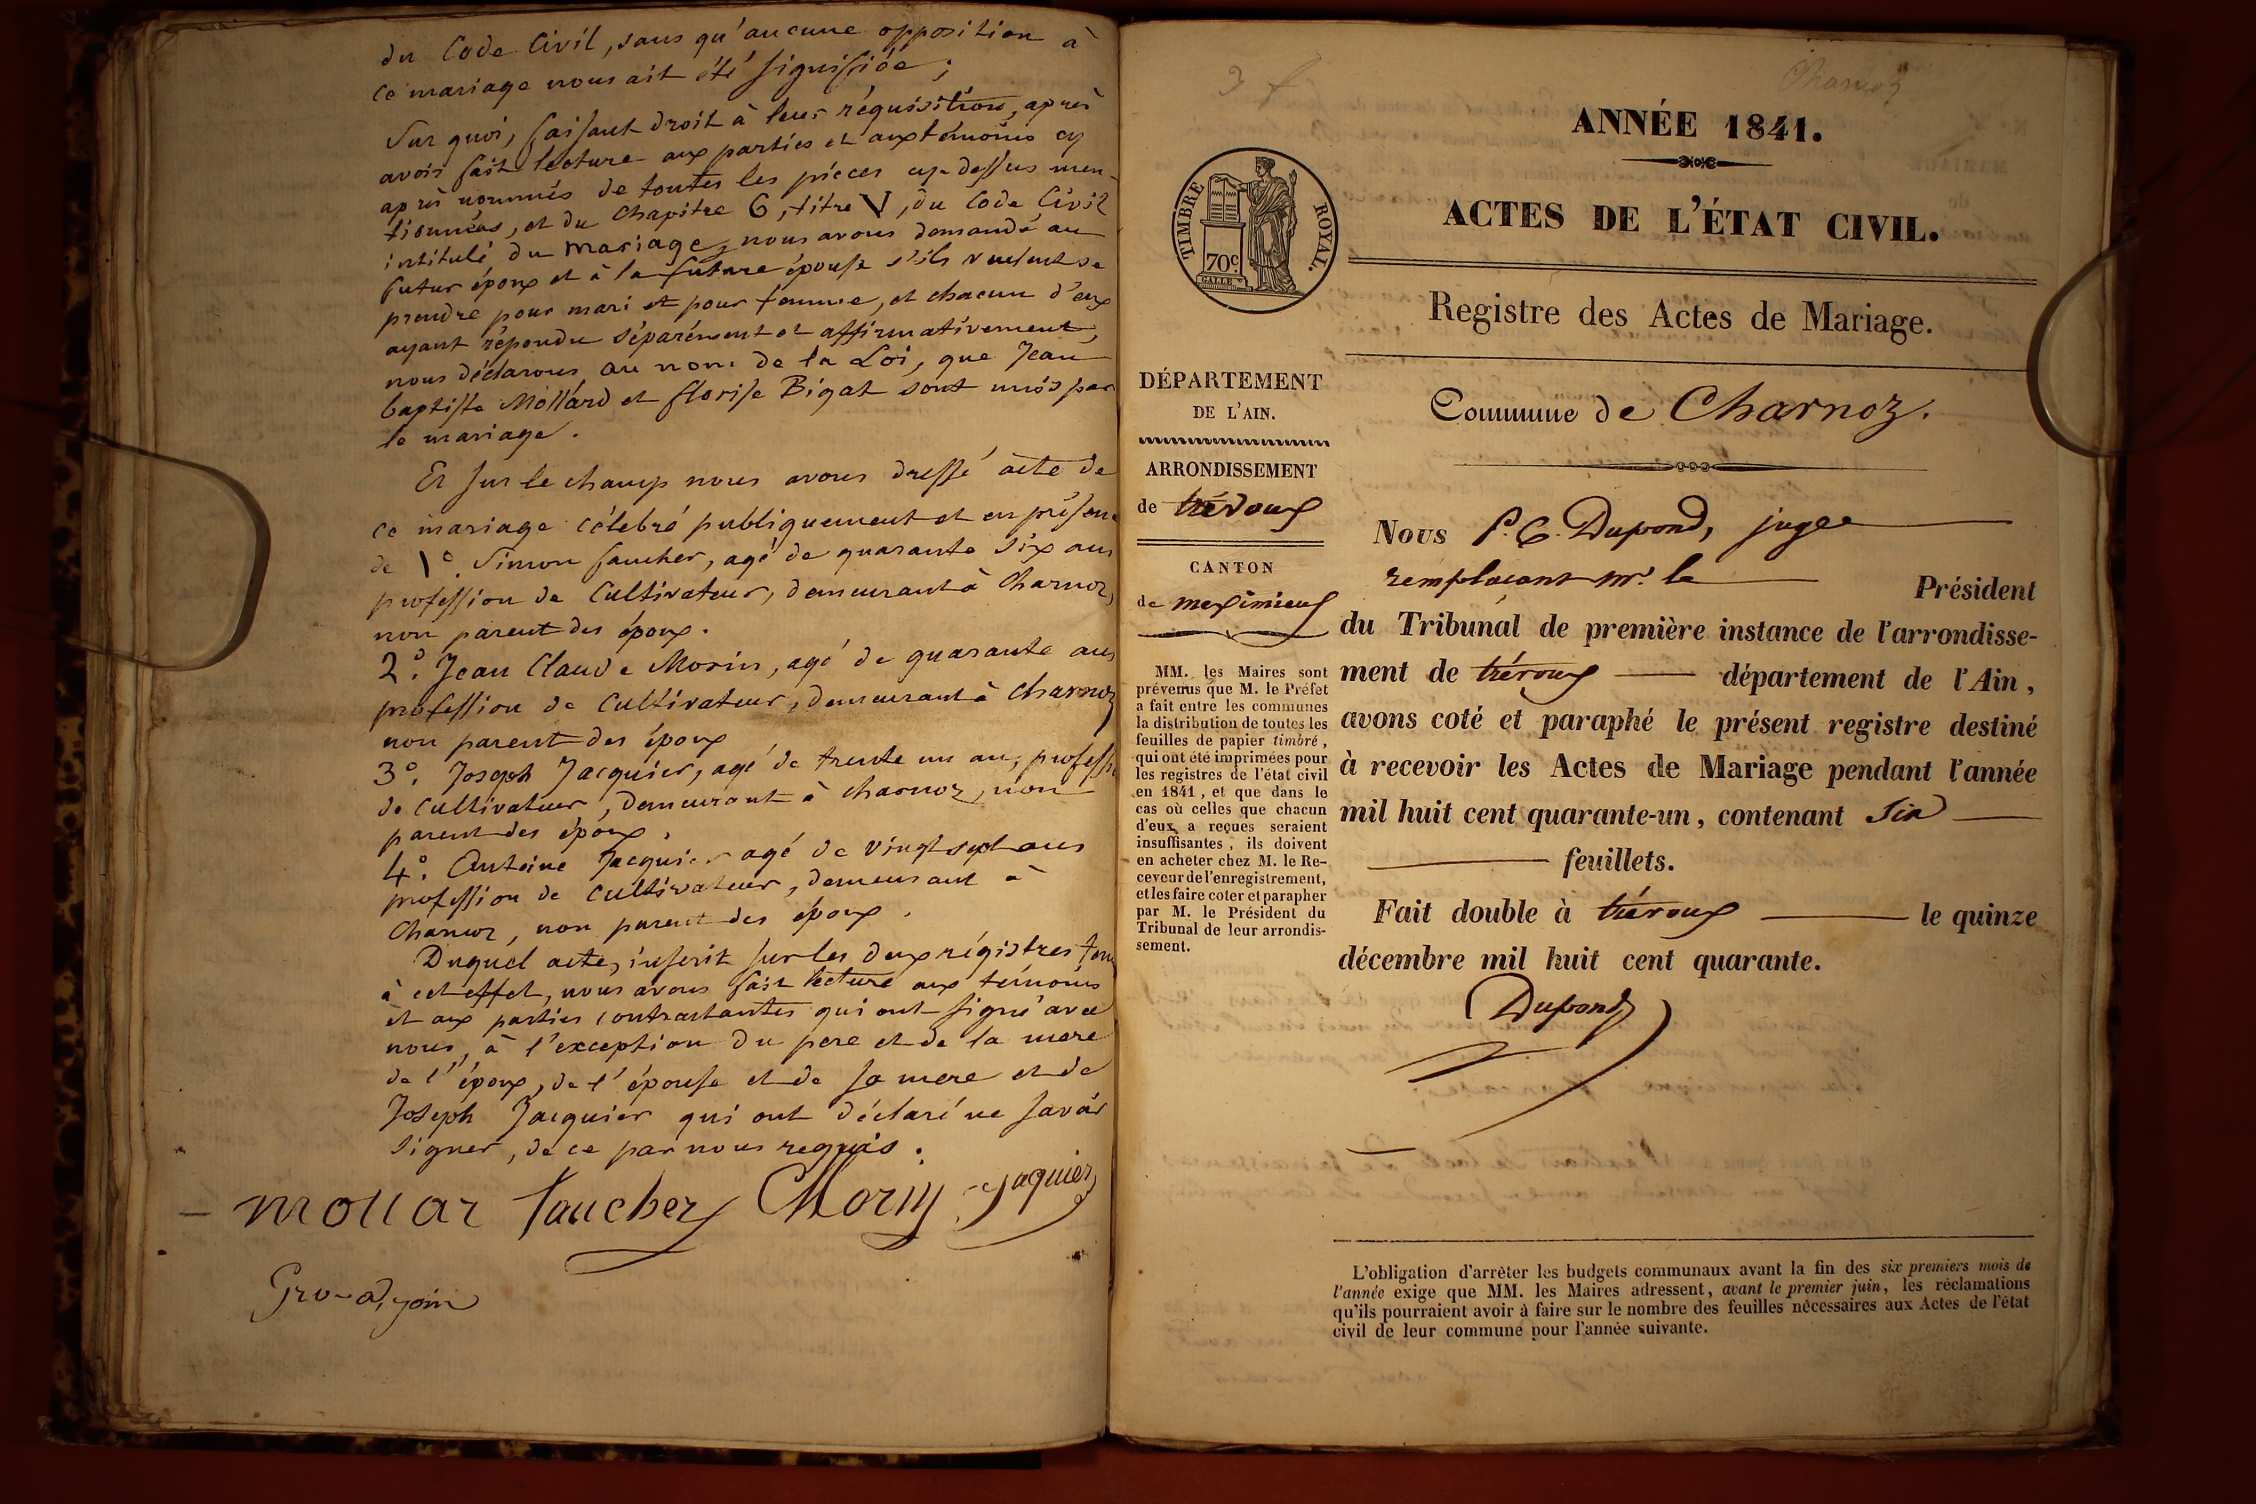 du Code Civil, sans qu'aucune opposition à
ce mariage nous ait été signifiée ;
Sur quoi, faisant droit à leur réquisition, après
avoir fait lecture aux parties et aux témoins cy
après nommés de toutes les pièces cy-dessus men-
tionnées, et du Chapitre 6, titre V, du Code Civil
intitulé du Mariage, nous avons demandé au
futur époux et à la future épouse s'ils veulent se
prendre pour mari et pour femme, et chacun d'eux
ayant répondu séparément et affirmativement,
nous déclarons au nom de la Loi, que Jean
baptiste Mollard et florise Bigat sont unis par
le mariage.
Et sur le champ nous avons dressé acte de
ce mariage célebré publiquement et en présence
de 1°. Simon faucher, agé de quarante six ans
profession de Cultivateur, demeurant à Charnoz,
non parent des époux.
2°. Jean Claude Morin, agé de quarante ans
profession de Cultivateur, demeurant à Charnoz
non parent des époux
3°. Joseph Jacquier, agé de trente un an, professi
de Cultivateur, demeurant à charnoz, non
parent des époux.
4°. Antoine Jacquier agé de vingt sept ans
profession de Cultivateur, demeurant à
Charnoz, non parent des époux.
Duquel acte, inscrit sur les deux régistres tenu
à cet effet, nous avons fait lecture aux témoins
et aux parties contractantes qui ont signé avec
nous, à l'exception du pere et de la mere
de l'époux, de l'épouse et de sa mere et de
Joseph Jacquier qui ont déclaré ne savoir
signer, de ce par nous requis.
mollar faucher Morin Jaquier
3 f
Charnoz
ANNÉE 1841.
ACTES DE L'ÉTAT CIVIL.
TIMBRE ROYAL.
70c.
Registre des Actes de Mariage.
Commune de Charnoz.
DÉPARTEMENT
DE L'AIN.
ARRONDISSEMENT
de trévoux
CANTON
de meximieux
MM. les Maires sont
prévenus que M. le Préfet
a fait entre les communes
la distribution de toutes les
feuilles de papier timbré,
qui ont été imprimées pour
les registres de l'état civil
en 1841, et que dans le
cas où celles que chacun
d'eux a reçues seraient
insuffisantes, ils doivent
en acheter chez M. le Re-
ceveur de l'enregistrement,
et les faire coter et parapher
par M. le Président du
Tribunal de leur arrondis-
sement.
Nous P. C. Dupond, juge
remplaçant Mr. le Président
du Tribunal de première instance de l'arrondisse-
ment de trévoux département de l'Ain,
avons coté et paraphé le présent registre destiné
à recevoir les Actes de Mariage pendant l'année
mil huit cent quarante-un, contenant six
feuillets.
Fait double à trévoux le quinze
décembre mil huit cent quarante.
Dupond
L'obligation d'arrêter les budgets communaux avant la fin des six premiers mois de
l'année exige que MM. les Maires adressent, avant le premier juin, les réclamations
qu'ils pourraient avoir à faire sur le nombre des feuilles nécessaires aux Actes de l'état
civil de leur commune pour l'année suivante.